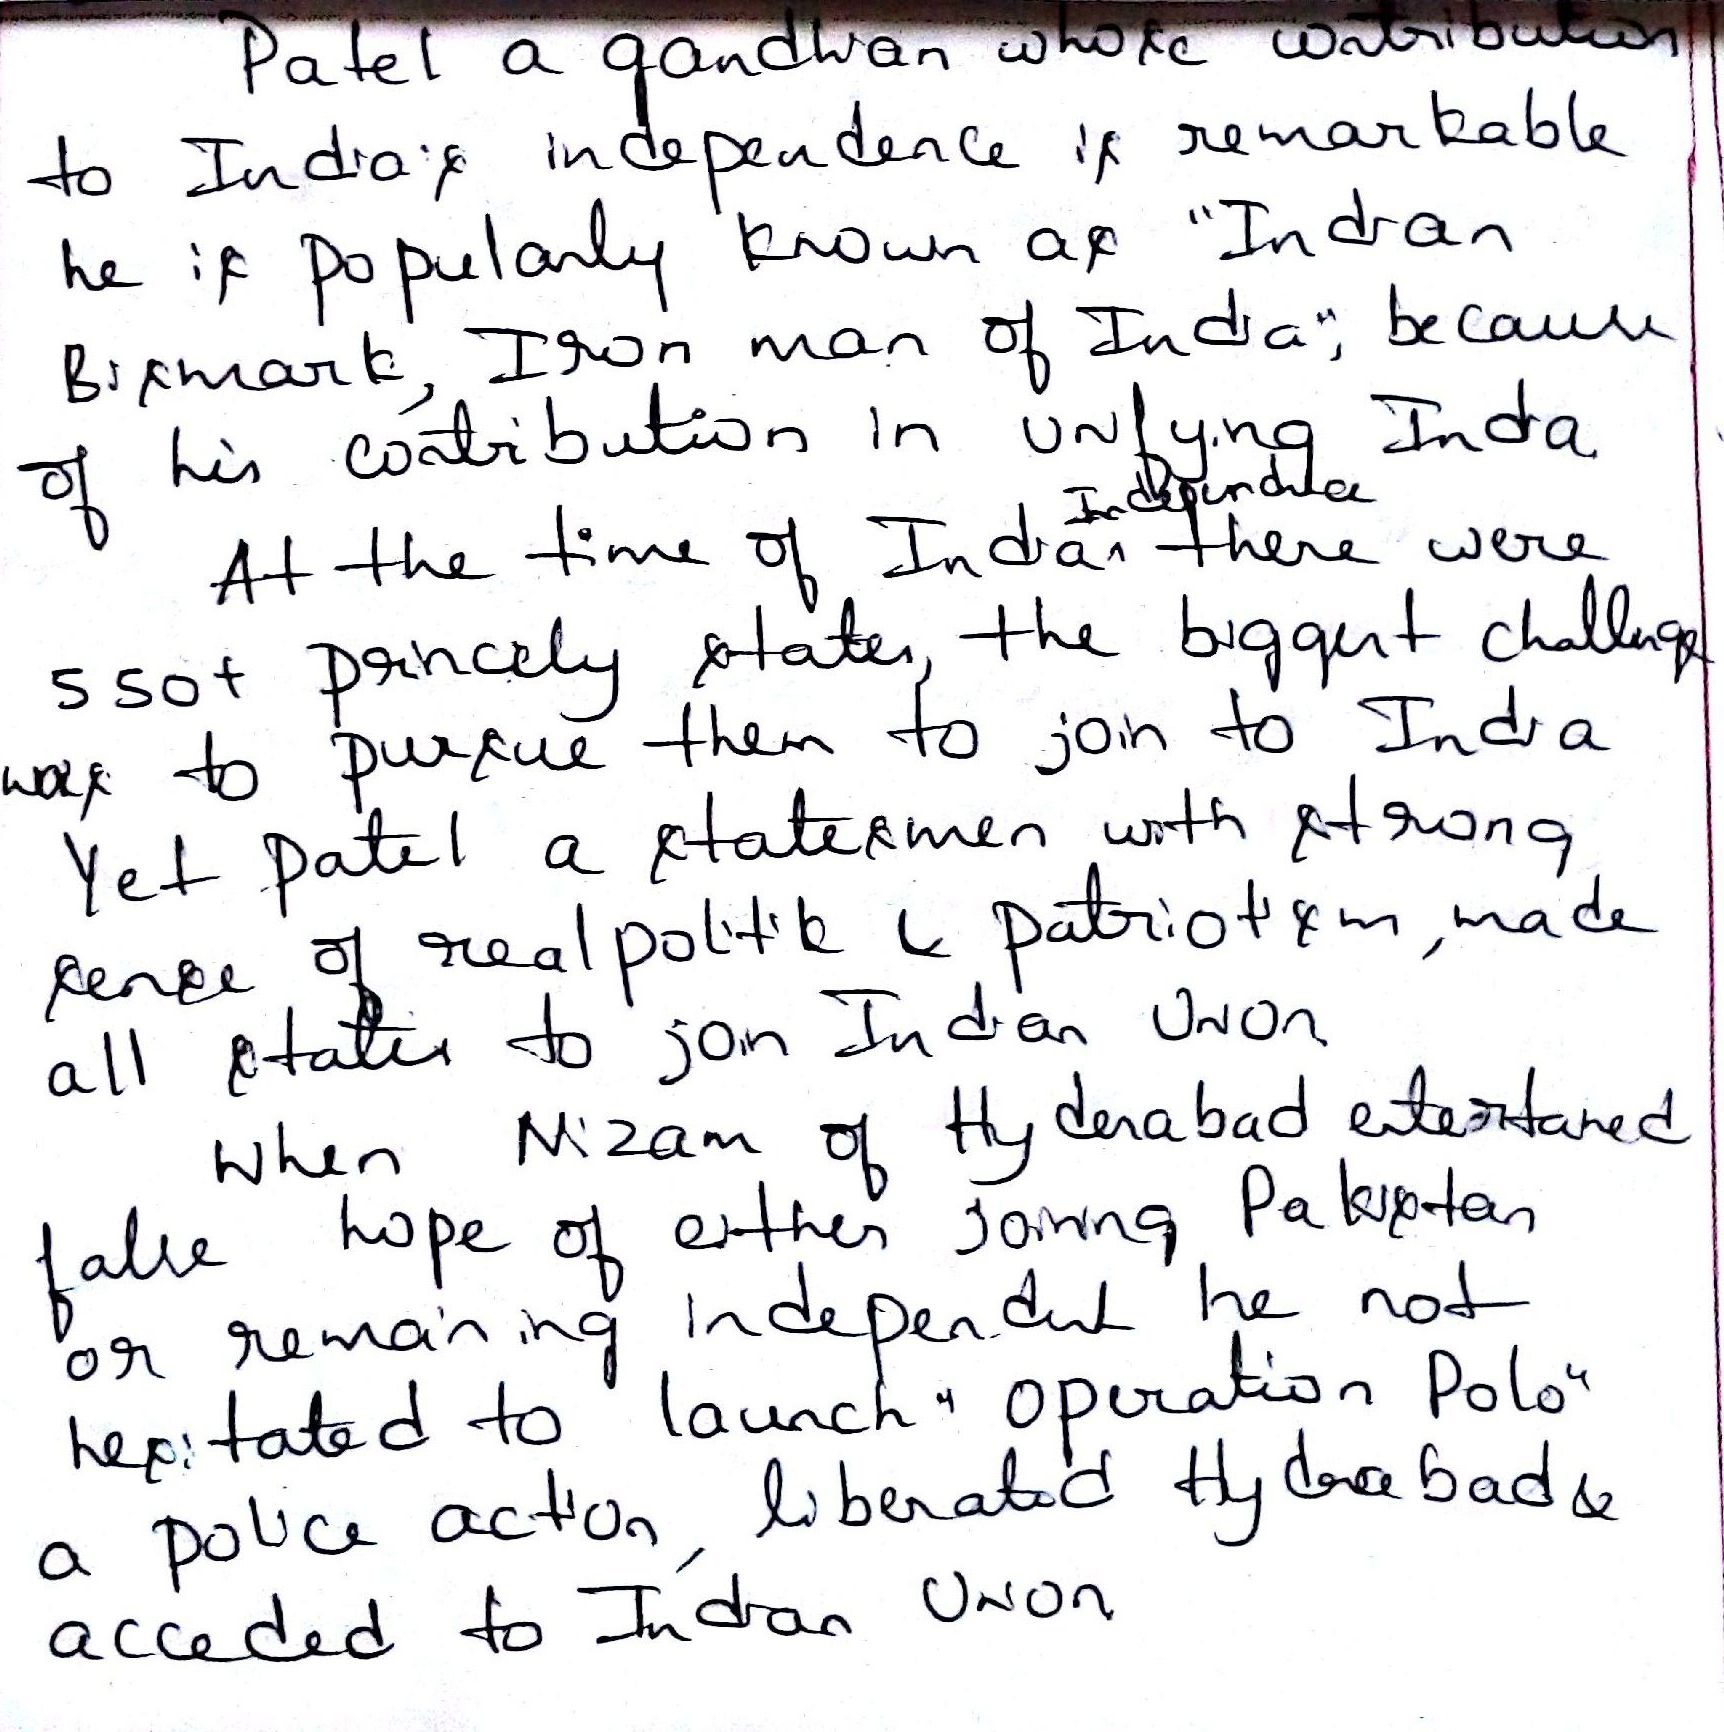 Patel a gandhian whose contribution
to India's independence is remarkable
he is popularly known as "Indian
Bismark, Iron man of India", because
of his contribution in unifying India.
Independence
At the time of India's there were
550+ princely states, the biggest challenge
was to pursue them to join to India
Yet Patel a statesmen with strong
sense of realpolitik & patriotism, made
all states to join Indian Union
When Nizam of Hyderabad entertained
false hope of either joining Pakistan
or remaining independent he not
hesitated to launch "Operation Polo"
a police action, liberated Hyderabad &
acceded to Indian Union